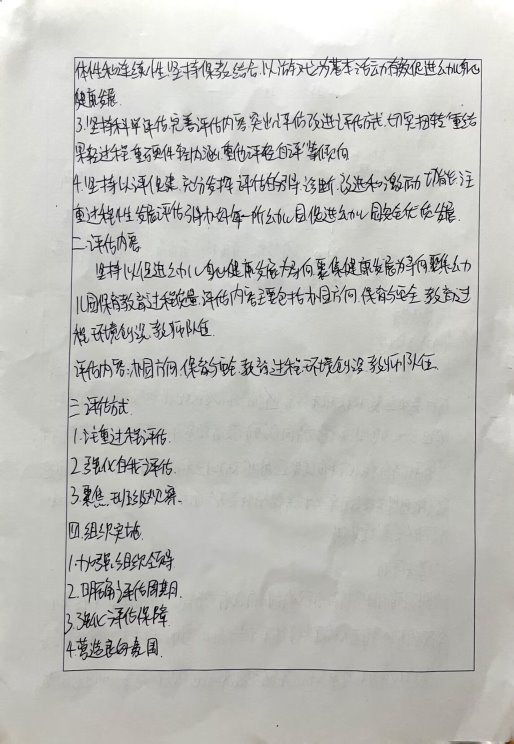 体性和连续性.坚持保教结合.以游戏为基本活动有效促进幼儿身心
健康发展.
3.坚持科学评估.完善评估内容.突出评估改进评估方式.切实扭转"重结
果轻过程.重硬件轻内涵.重他评轻自评"等倾向
4.坚持以评促建.充分发挥评估的引导,诊断,改进和激励功能.注
重过程性.发展评估引导办好每一所幼儿园促进幼儿园安全优质发展.
二.评估内容
坚持以促进幼儿身心健康发展为导向聚焦健康发展为导向聚焦幼
儿园保育教育过程质量.评估内容主要包括办园方向.保育与安全.教育过
程.环境创设.教师队伍.
评估内容:办园方向.保育与安全.教育过程.环境创设.教师队伍.
三.评估方式.
1.注重过程评估.
2.强化自我评估.
3.聚焦班级观察.
四.组织实施.
1.加强组织领导
2.明确评估周期.
3.强化评估保障.
4.营造良好氛围.